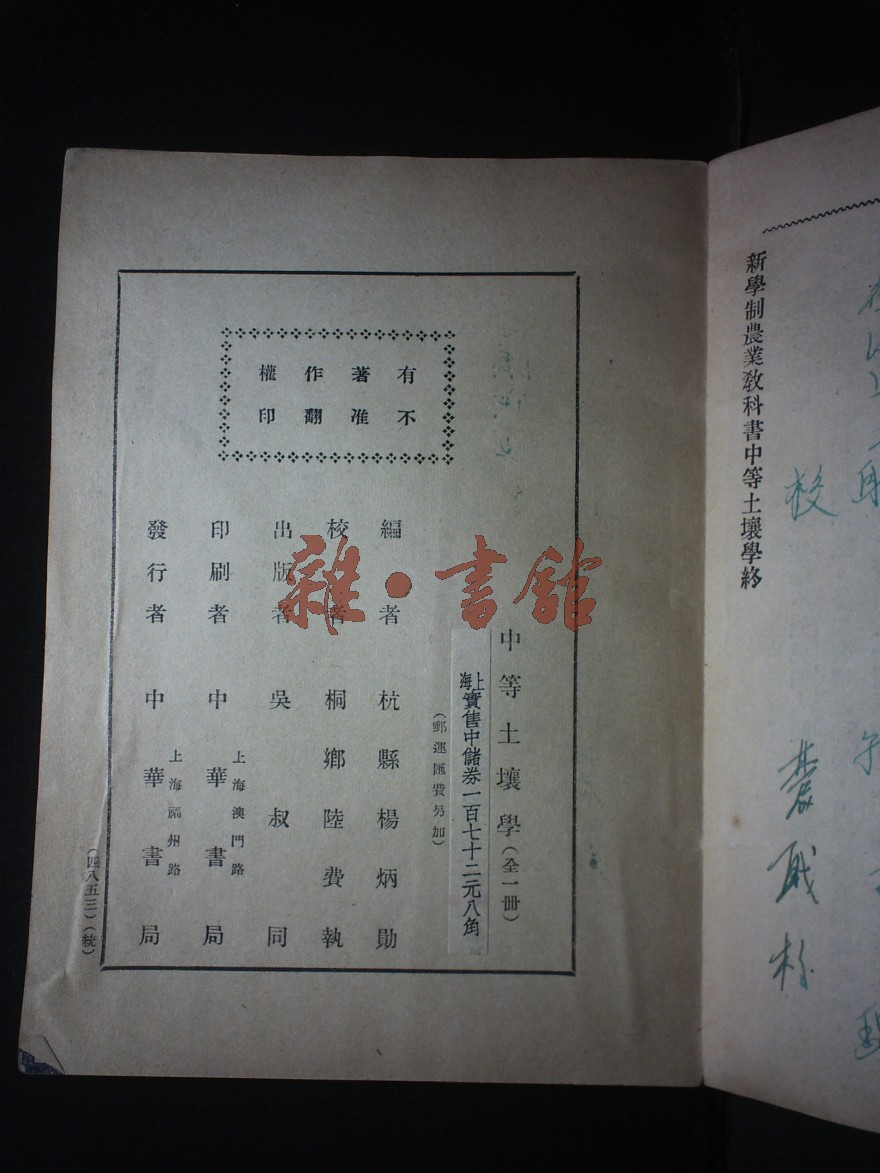 新學制農業教科書中等土壤學終
校
有著作權
不准翻印
中等土壤學(全一冊)
上海實售中儲券一百七十二元八角
(郵運匯費另加)
編者 杭縣楊炳勛
校者 桐鄉陸費執
出版者 吳叔同
上海澳門路
印刷者 中華書局
上海福州路
發行者 中華書局
(四八五三)(統)
雜·書館